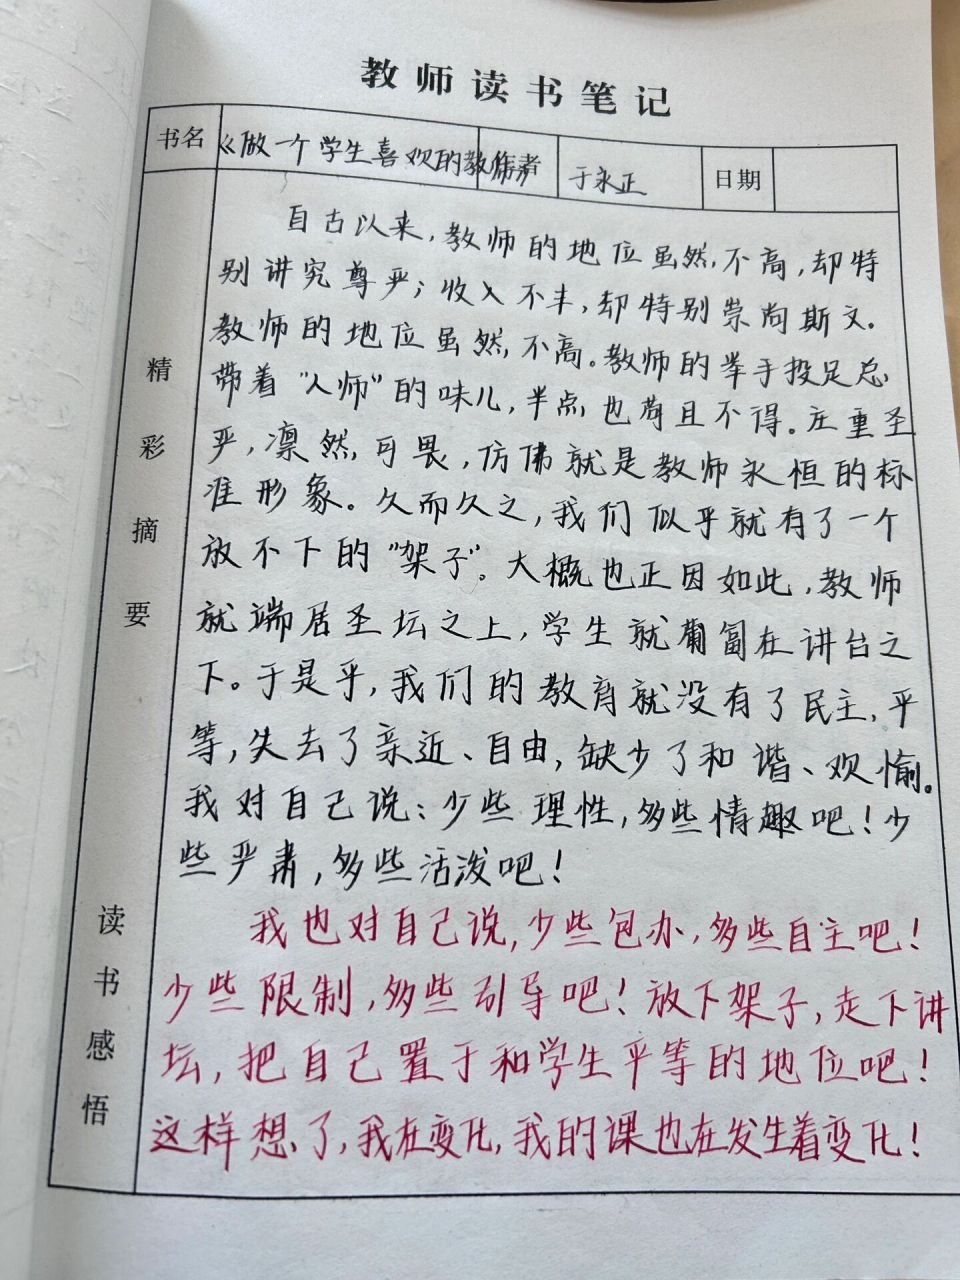 教师读书笔记
书名 《做一个学生喜欢的教师》 作者 于永正 日期
精彩摘要
自古以来，教师的地位虽然不高，却特
别讲究尊严；收入不丰，却特别崇尚斯文.
教师的地位虽然不高。教师的举手投足总
带着“人师”的味儿，半点也苟且不得。庄重圣
严，凛然可畏，仿佛就是教师永恒的标
准形象。久而久之，我们似乎就有了一个
放不下的“架子”。大概也正因如此，教师
就端居圣坛之上，学生就匍匐在讲台之
下。于是乎，我们的教育就没有了民主、平
等，失去了亲近、自由，缺少了和谐、欢愉。
我对自己说：少些理性，多些情趣吧！少
些严肃，多些活泼吧！
读书感悟
我也对自己说，少些包办，多些自主吧！
少些限制，多些引导吧！放下架子，走下讲
坛，把自己置于和学生平等的地位吧！
这样想了，我在变化，我的课也在发生着变化！